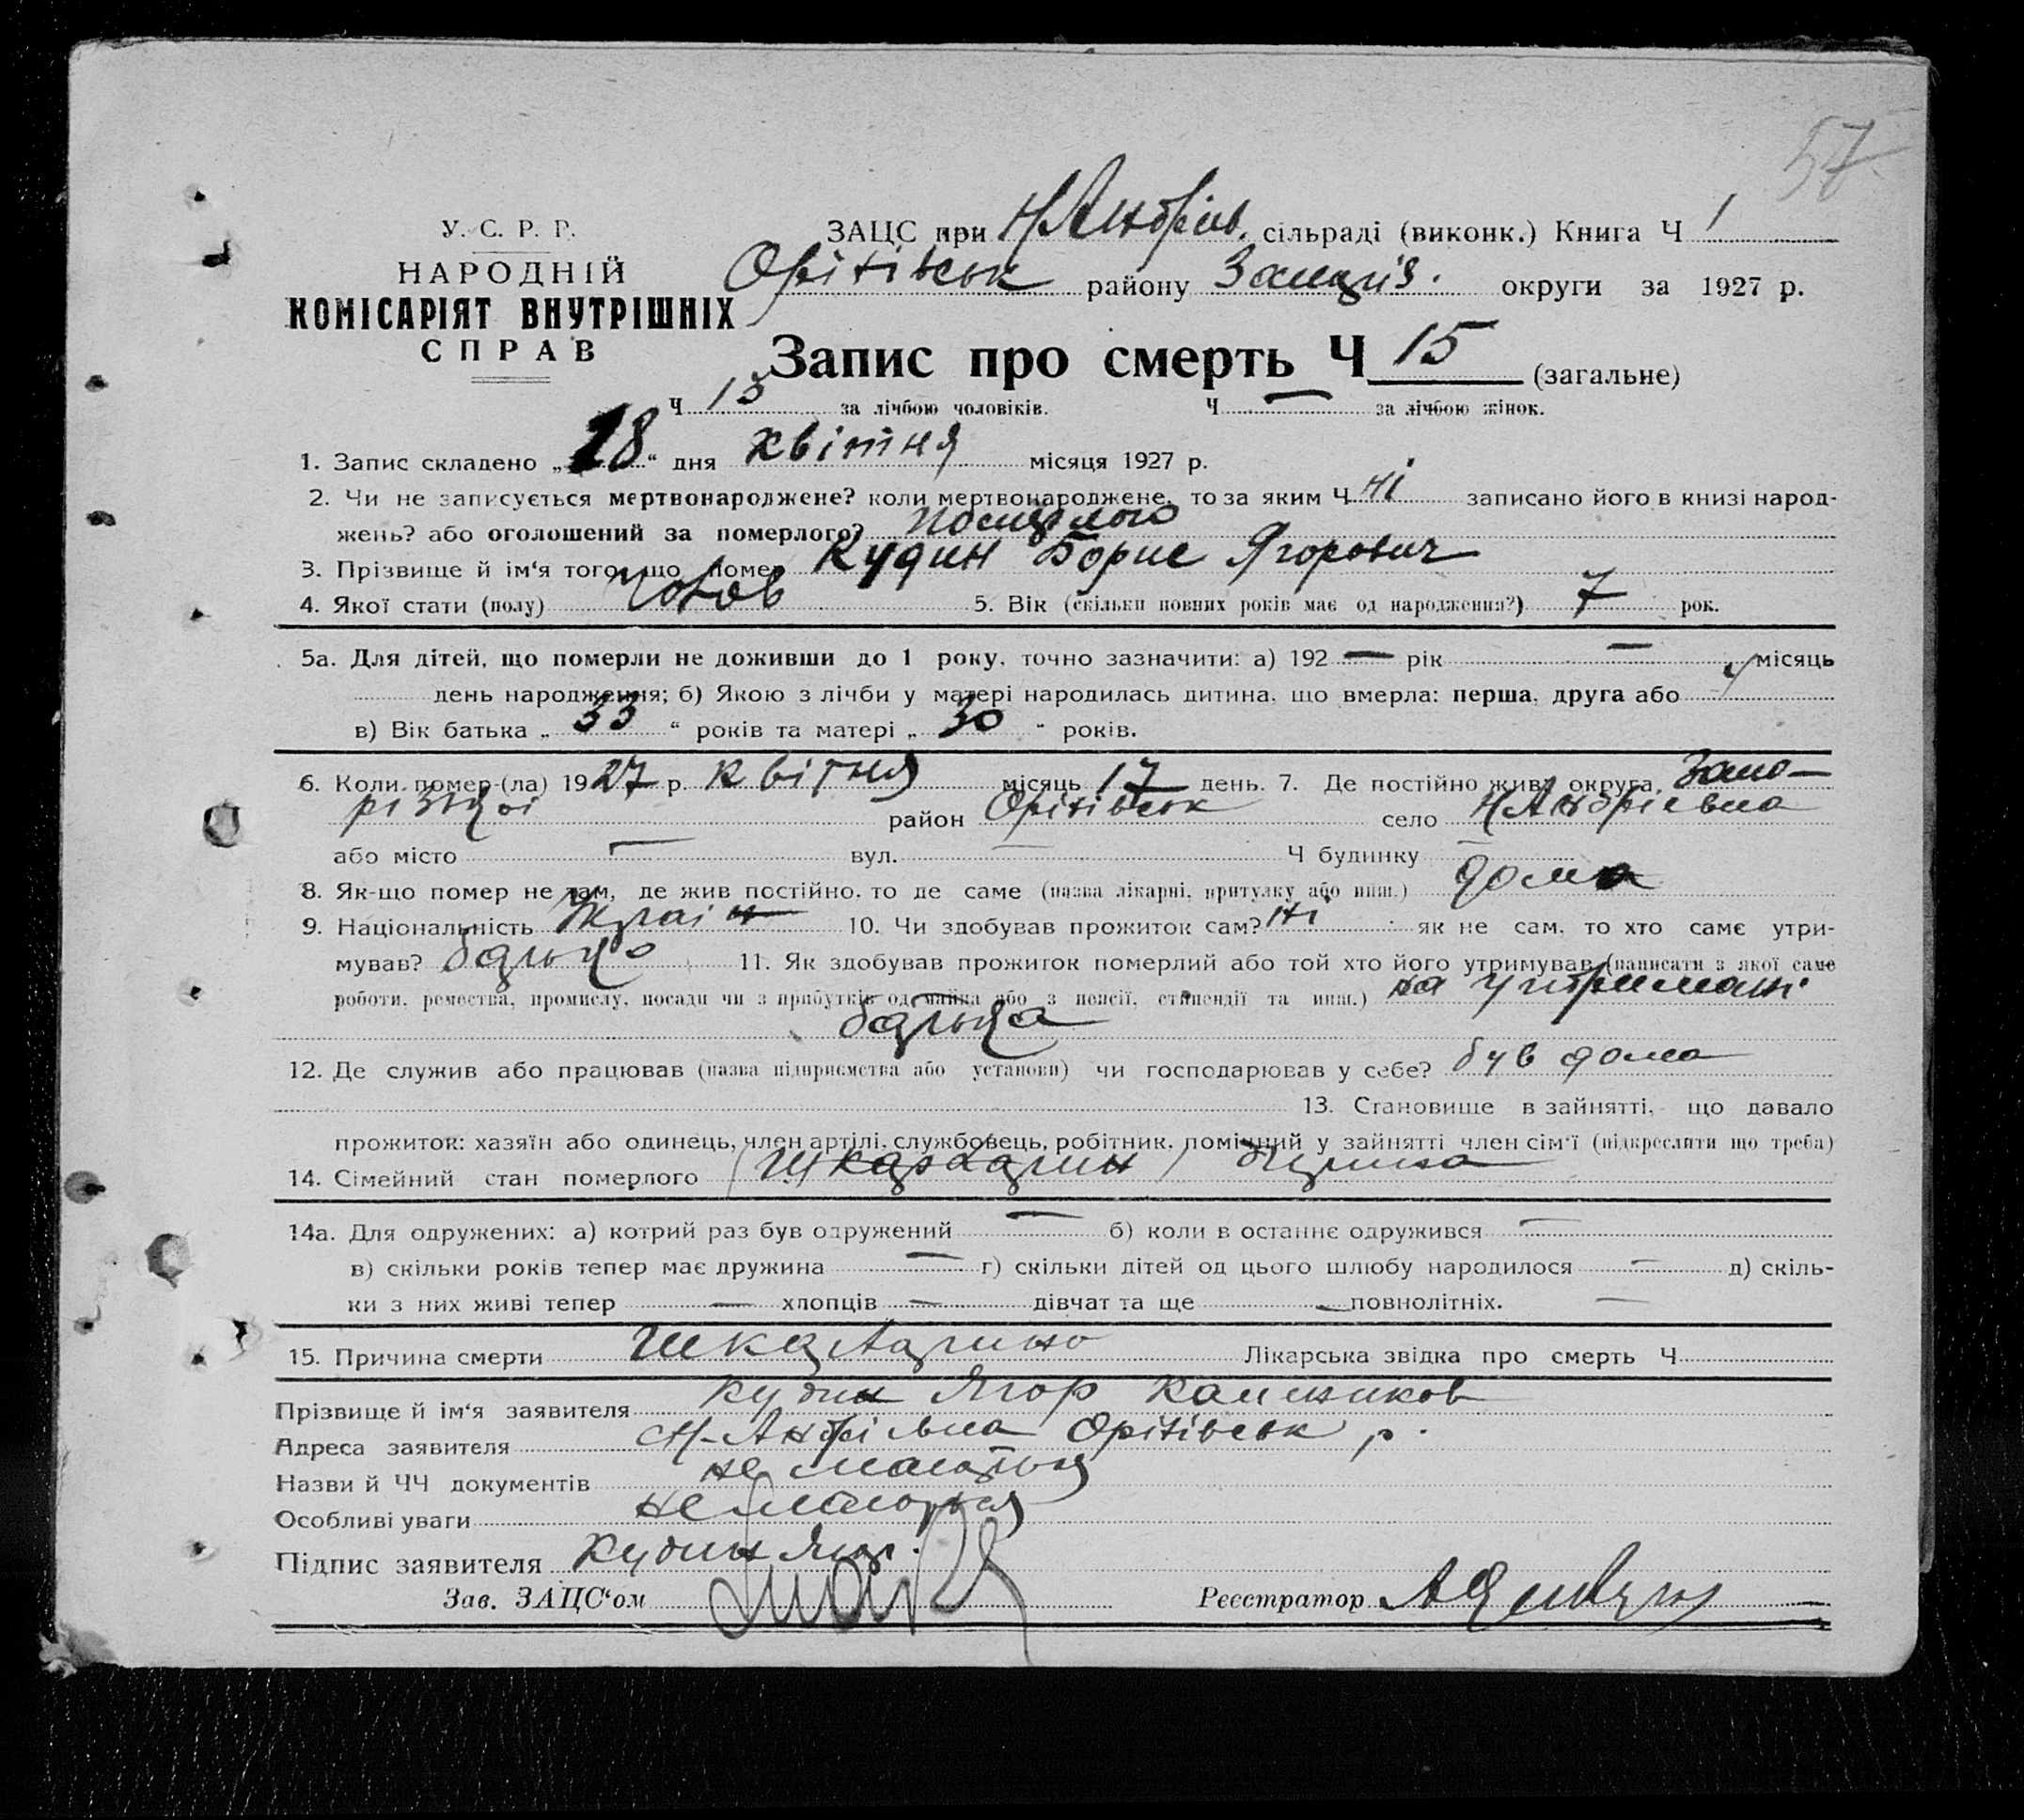 57
У. С. Р. Р.
НАРОДНІЙ
КОМІСАРІЯТ ВНУТРІШНІХ
СПРАВ
ЗАЦС при Н Андріїв. сільраді (виконк.) Книга Ч 1
Оріхівськ району Запоріз. округи за 1927 р.
Запис про смерть Ч 15 (загальне)
Ч 15 за лічбою чоловіків. Ч — за лічбою жінок.
1. Запис складено „18“ дня квітня місяця 1927 р.
2. Чи не записується мертвонароджене? коли мертвонароджене, то за яким Ч ні записано його в книзі народ-
жень? або оголошений за померлого? померлого
3. Прізвище й ім‘я того, що помер Кудин Борис Ягорович
4. Якої стати (полу) чолов 5. Вік (скільки повних років має од народження?) 7 рок.
5а. Для дітей, що померли не доживши до 1 року, точно зазначити: а) 192 — рік — місяць
день народження; б) Якою з лічби у матері народилась дитина, що вмерла: перша, друга або 4
в) Вік батька „ 33 “ років та матері „ 30 “ років.
6. Коли помер-(ла) 1927 р. квітня місяць 17 день. 7. Де постійно жив? округа Запо-
різької район Оріхівськ село Н Андрієвка
або місто — вул. — Ч будинку —
8. Як-що помер не там, де жив постійно, то де саме (назва лікарні, притулку або инш.) дома
9. Національність Україн 10. Чи здобував прожиток сам? ні як не сам, то хто саме утри-
мував? батько 11. Як здобував прожиток померлий або той хто його утримував (написати з якої саме
роботи, ремества, промислу, посади чи з прибутків од майна або з пенсії, стипендії та инш.) на утримані
батька
12. Де служив або працював (назва підприємства або установи) чи господарював у себе? був дома
13. Становище в зайнятті, що давало
прожиток: хазяїн або одинець, член артілі, службовець, робітник, помічний у зайнятті член сім‘ї (підкреслити що треба)
14. Сімейний стан померлого
14а. Для одружених: а) котрий раз був одружений — б) коли в останнє одружився —
в) скільки років тепер має дружина — г) скільки дітей од цього шлюбу народилося — д) скіль-
ки з них живі тепер — хлопців — дівчат та ще — повнолітніх. —
15. Причина смерти Шкалатино Лікарська звідка про смерть Ч
Прізвище й ім‘я заявителя Кудин Ягор
Адреса заявителя Н-Андрієвка Оріхівськ р.
Назви й ЧЧ документів не мається
Особливі уваги не мається
Підпис заявителя Кудин Яго.
Зав. ЗАЦС‘ом
Реєстратор